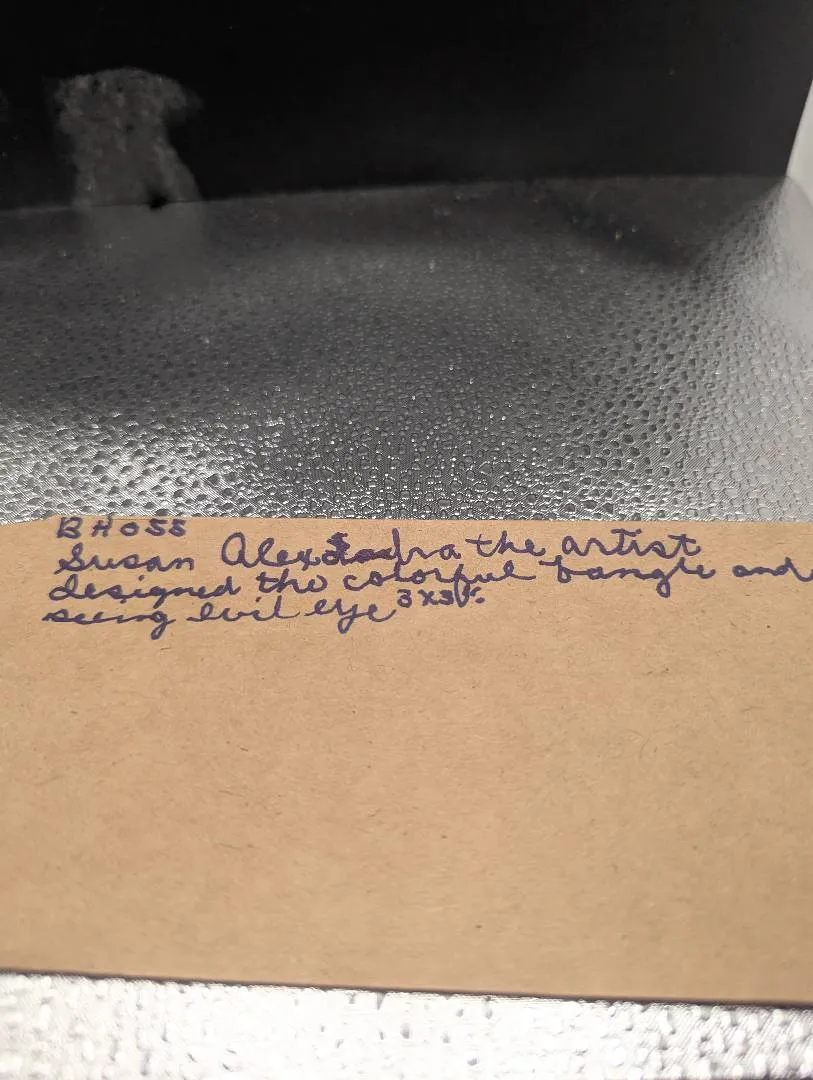 BH055
Susan Alexandra the artist
designed the colorful bangle and
seeing evil eye 3x3